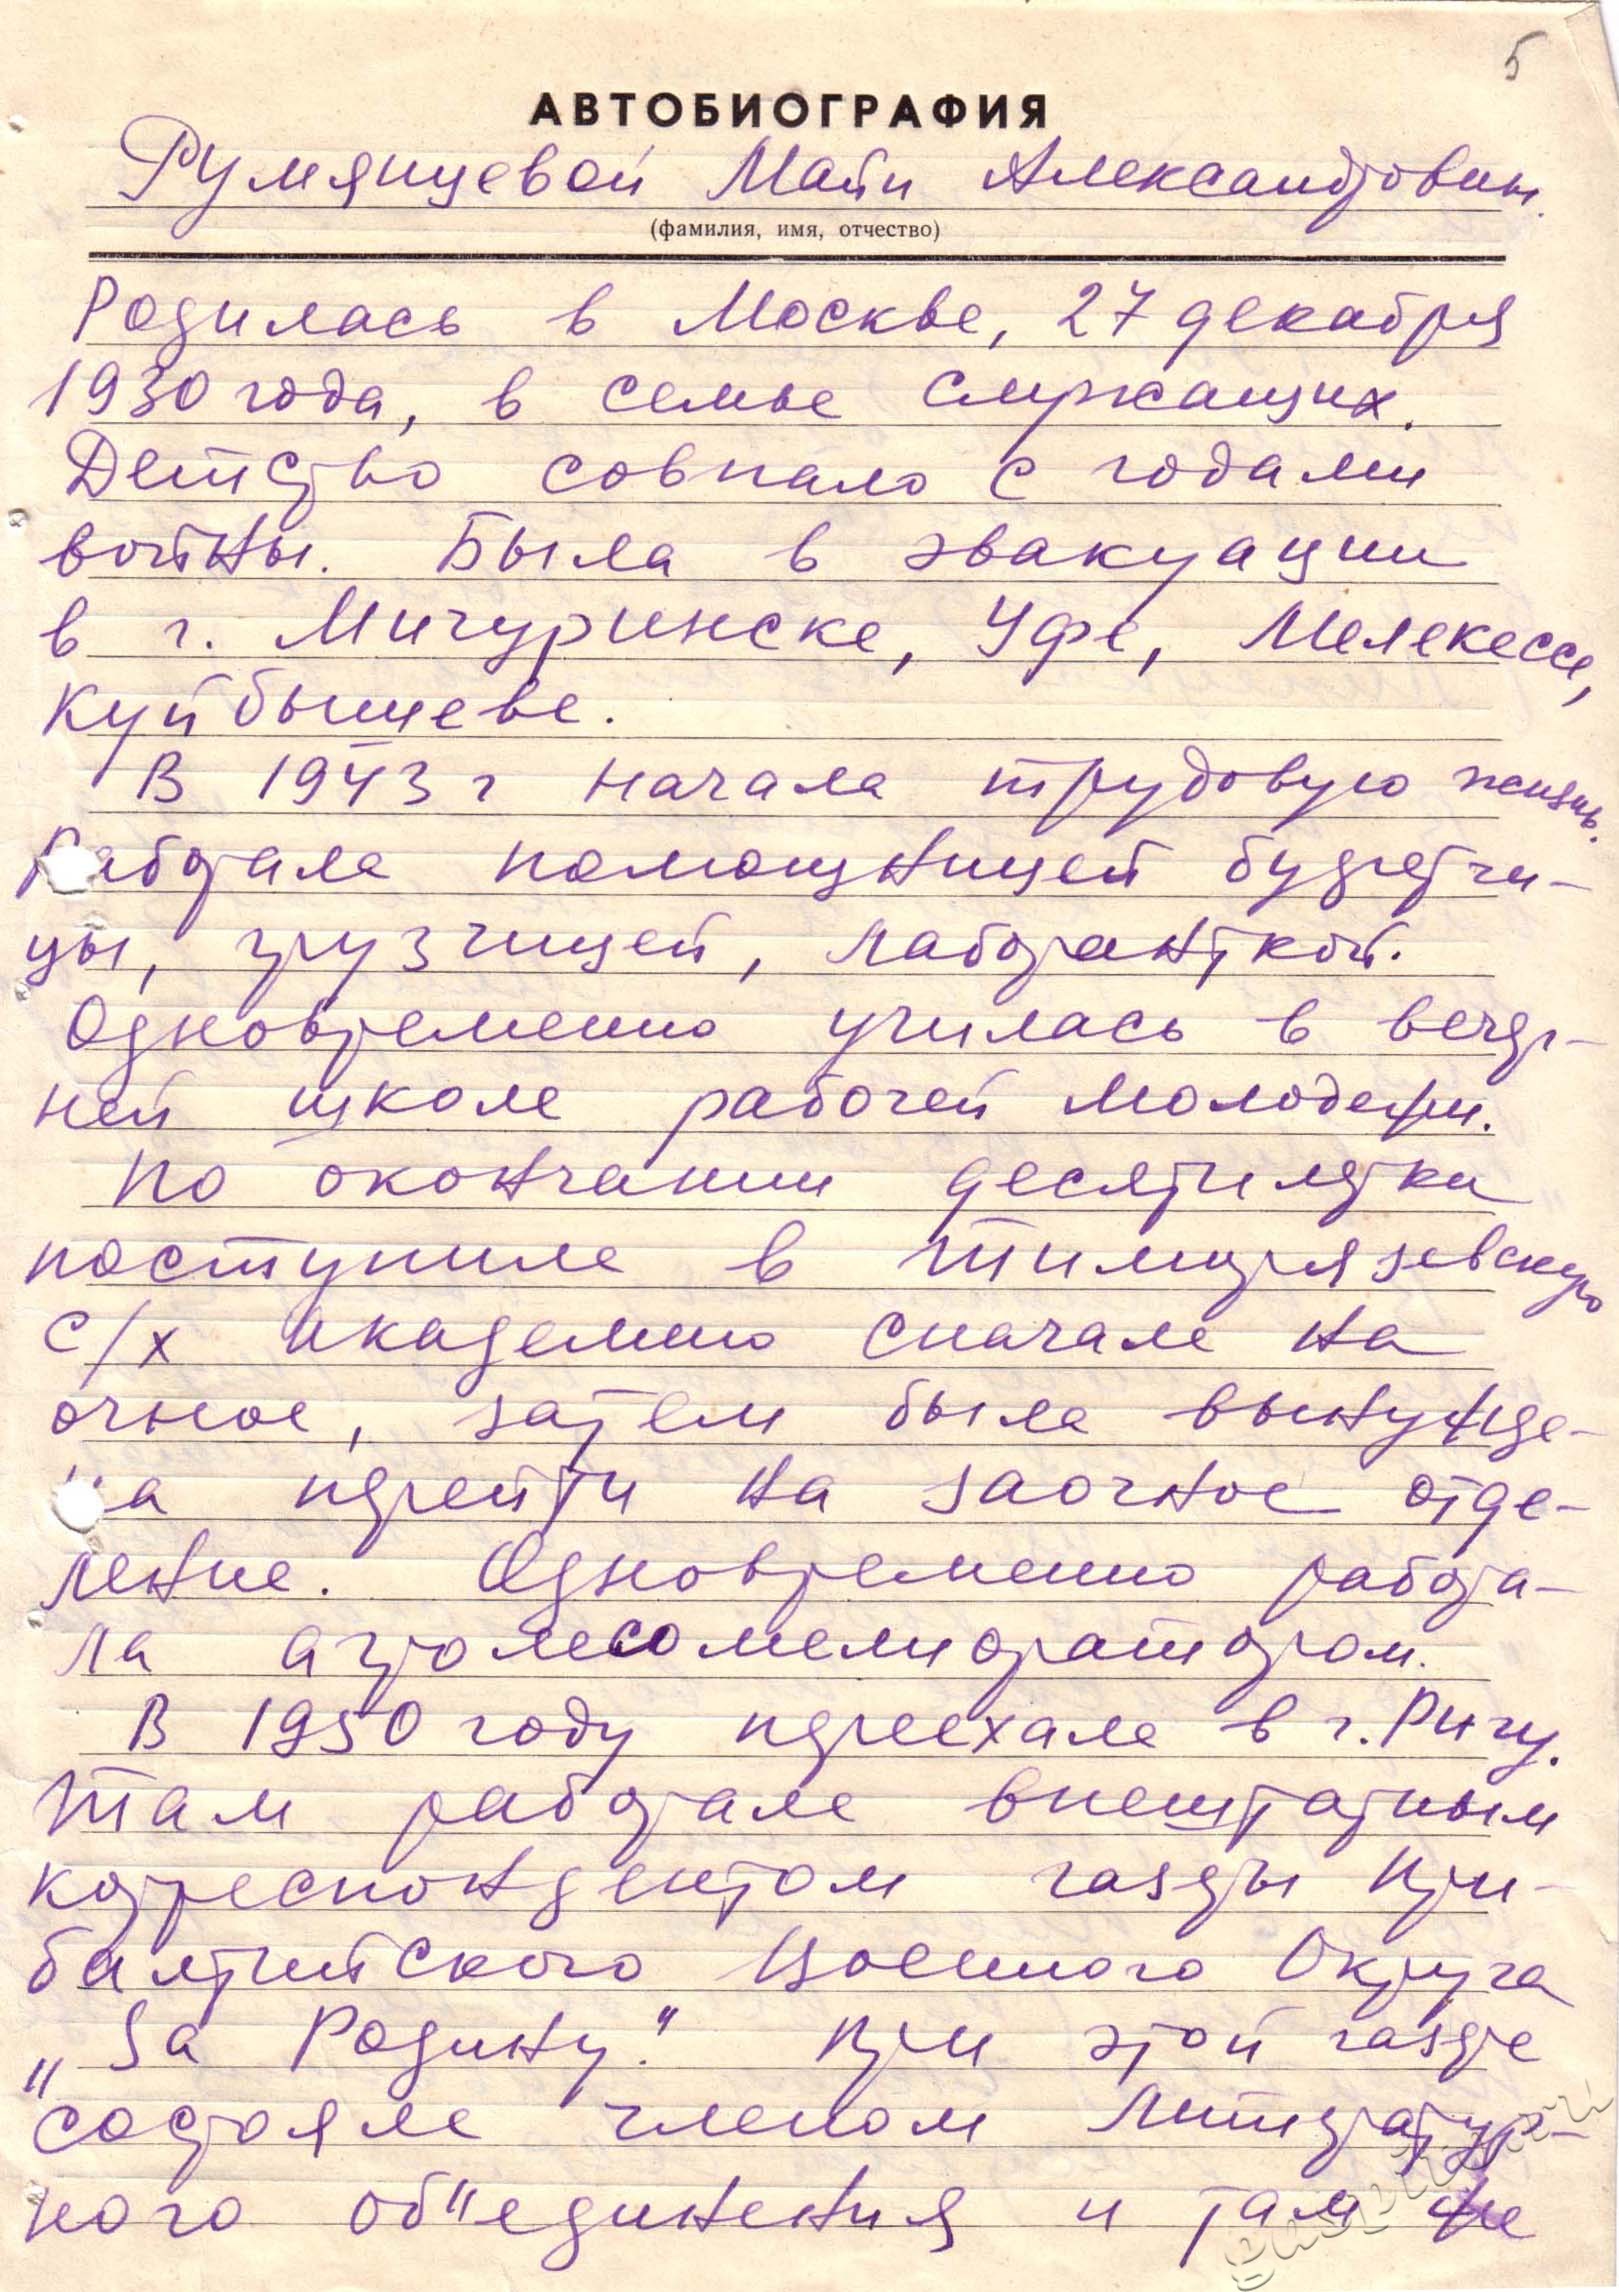 5
АВТОБИОГРАФИЯ
Румянцевой Майи Александровны.
(фамилия, имя, отчество)
Родилась в Москве, 27 декабря
1930 года, в семье служащих.
Детство совпало с годами
войны. Была в эвакуации
в г. Мичуринске, Уфе, Мелекессе,
Куйбышеве.
В 1943 г начала трудовую жизнь.
Работала помощницей буфетчи-
цы, грузчицей, лаборанткой.
Одновременно училась в вечер-
ней школе рабочей молодежи.
По окончании десятилетки
поступила в Тимирязевскую
с/х академию сначала на
очное, затем была вынужде-
на перейти на заочное отде-
ление. Одновременно работа-
ла агролесомелиоратором.
В 1950 году переехала в г. Ригу.
Там работала внештатным
корреспондентом газеты При-
балтийского Военного Округа
„За Родину." При этой газете
состояла членом Литератур-
ного об"единения и там же